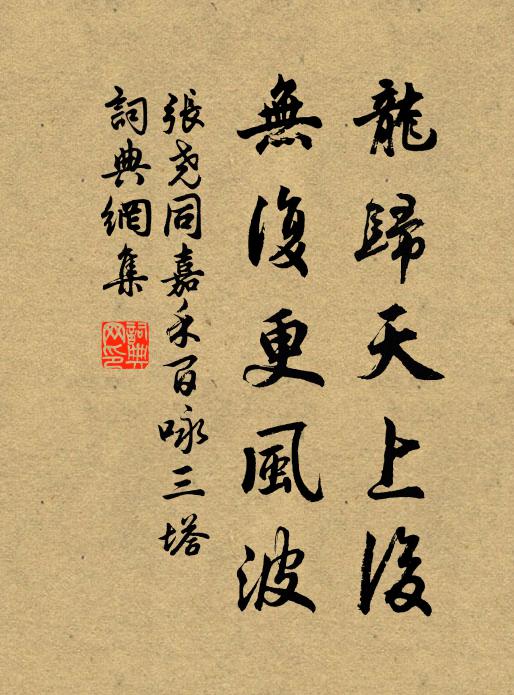 龍歸天上後
無復更風波
張堯同嘉禾百咏三塔
詞典網集
詞典網印